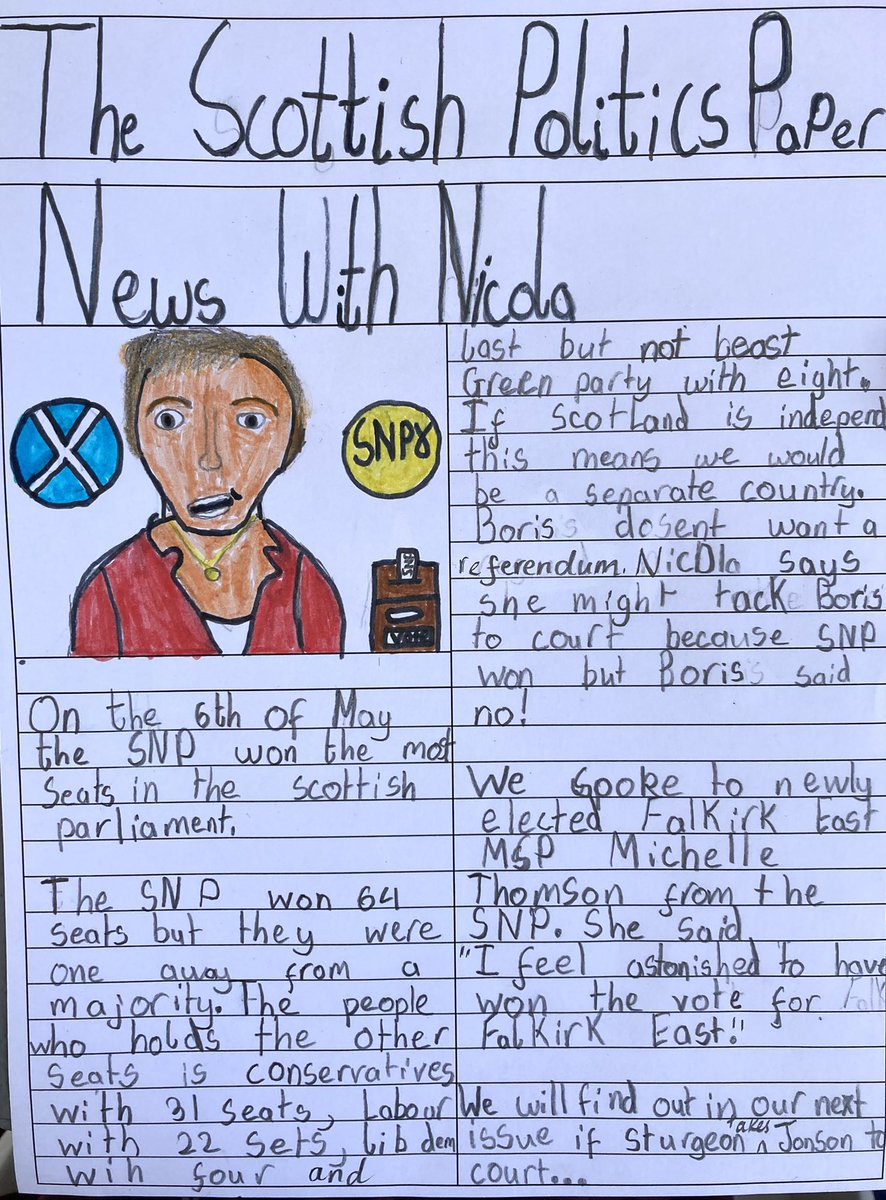 The Scottish Politics Paper
News With Nicola
SNP
VOTE
On the 6th of May
the SNP won the most
Seats in the scottish
parliament.
The SNP won 64
seats but they were
one away from a
majority. The people
who holds the other
Seats is conservatives
with 31 seats, Labour
with 22 sets, lib dem
wih four and
last but not beast
Green party with eight.
If scotland is independ
this means we would
be a separate country.
Boris dosent want a
referendum. Nicola says
she might tack Boris
to court because SNP
won but Boris said
no!
We spoke to newly
elected Falkirk East
MSP Michelle
Thomson from the
SNP. She said
"I feel astonished to have
won the vote for
Falkirk East!"
We will find out in our next
issue if Sturgeon takes Jonson to
court...